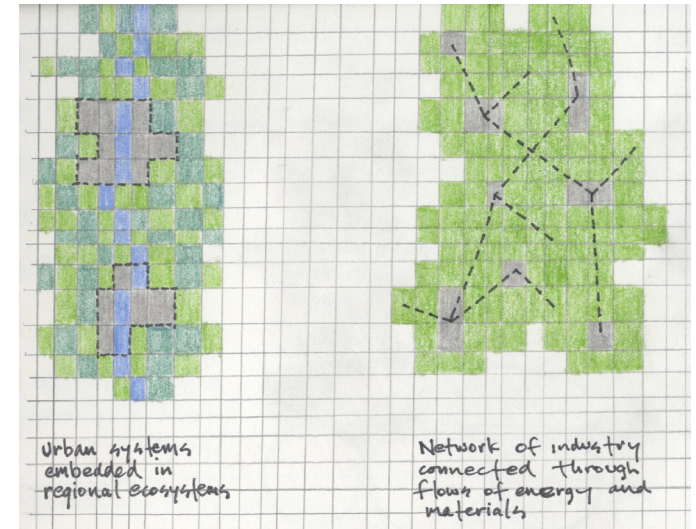 urban systems
embedded in
regional ecosystems
Network of industry
connected through
flows of energy and
materials